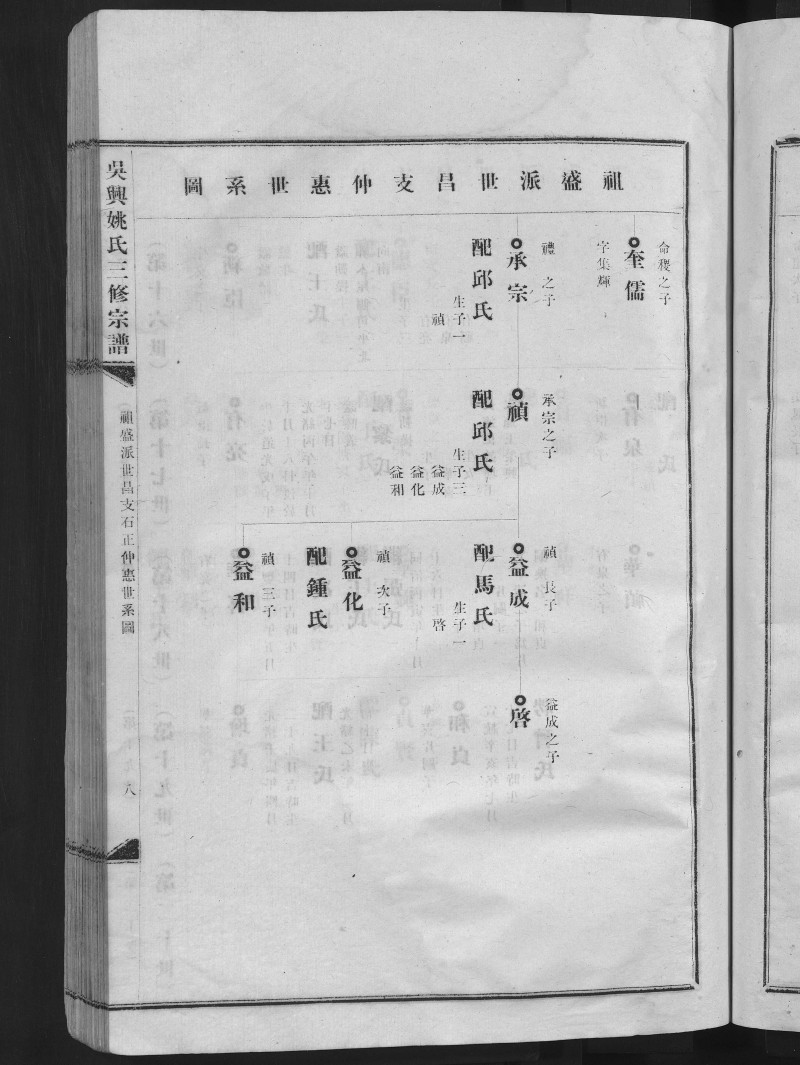 祖盛派世昌支仲惠世系圖
命稷之子
奎儒
字集輝
禮之子
承宗
配邱氏
生子一
禎
承宗之子
禎
配邱氏
生子三
益成
益化
益和
禎長子
益成
配馬氏
生子一
啓
禎次子
益化
配鍾氏
禎三子
益和
益成之子
啓
吳興姚氏三修宗譜
祖盛派世昌支石正仲惠世系圖
八